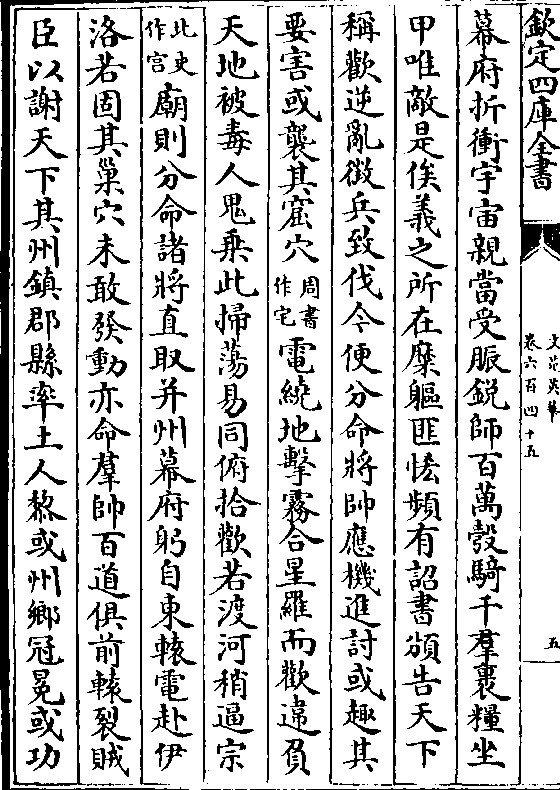 欽定四庫全書
文苑英華
卷六百四十五
五
幕府折衝宇宙親當受脤銳師百萬彀騎千羣裹糧坐
甲唯敵是俟義之所在糜軀匪恡頻有詔書頒告天下
稱歡逆亂徵兵致伐今便分命將帥應機進討或趣其
要害或襲其窟穴周書作宅電繞地擊霧合星羅而歡違負
天地被毒人鬼乗此掃蕩易同俯拾歡若渡河稍逼宗
北史作宫廟則分命諸將直取并州幕府躬自東轅電赴伊
洛若固其巢穴未敢發動亦命羣帥百道俱前轅裂賊
臣以謝天下其州鎮郡縣率土人黎或州鄉冠冕或功